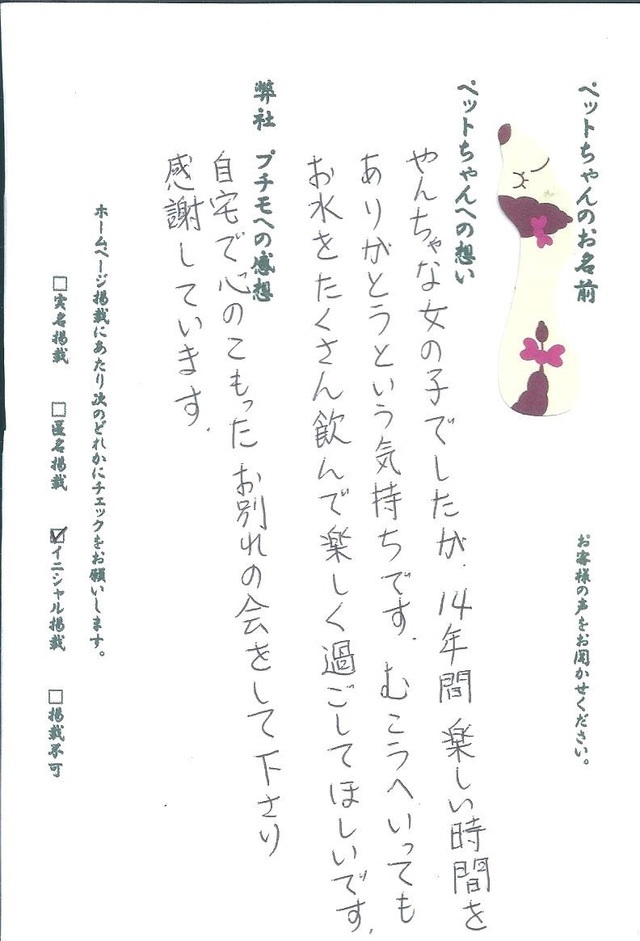 お客様の声をお聞かせください。
ペットちゃんのお名前
ペットちゃんへの想い
やんちゃな女の子でしたが、14年間楽しい時間を
ありがとうという気持ちです。むこうへいっても
お水をたくさん飲んで楽しく過ごしてほしいです。
弊社 プチモへの感想
自宅で心のこもったお別れの会をして下さり
感謝しています。
ホームページ掲載にあたり次のどれかにチェックをお願いします。
□実名掲載 □匿名掲載 ☑イニシャル掲載 □掲載不可